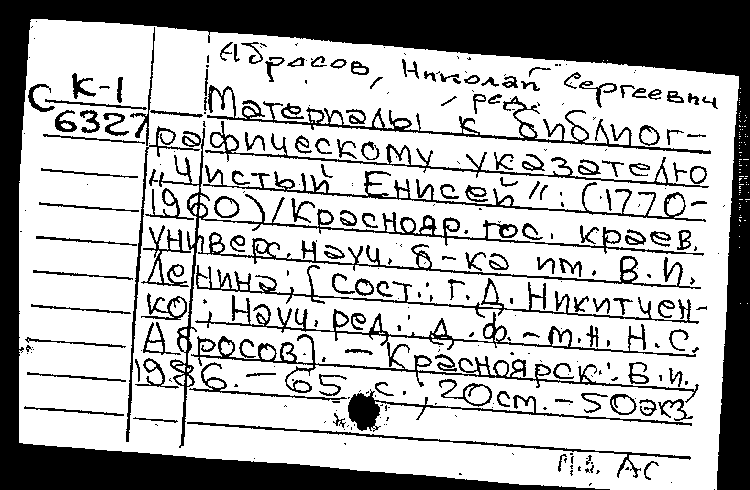 Абросов, Николай Сергеевич
, ред.
К-1
С 6327
Материалы к библиог-
рафическому указателю
„Чистый Енисей": (1770-
1960)/Краснояр. гос. краев.
универс. науч. б-ка им. В.И.
Ленина; [Сост.: Г.Д. Никитчен-
ко; Науч. ред.: д.ф.-м.н. Н.С.
Абросов]. - Красноярск: Б.и.,
1986. - 65 с.; 20см. - 50экз
АС